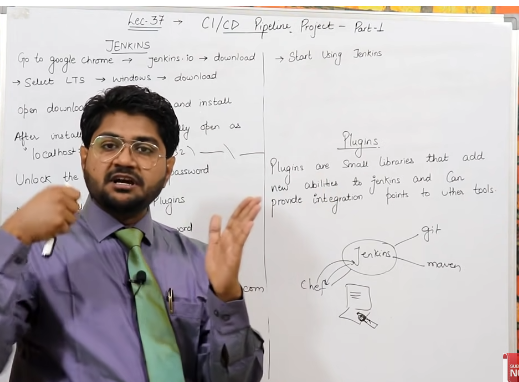 Lec-37 → CI/CD Pipeline Project - Part-1
JENKINS
Go to google chrome → jenkins.io → download
→ Select LTS → windows → download
Open and install
After open as
Unlock the password
Plugins
.com
→ Start Using Jenkins
Plugins
Plugins are Small libraries that add
new abilities to jenkins and Can
provide integration points to other tools.
git
Jenkins
maven
Chef